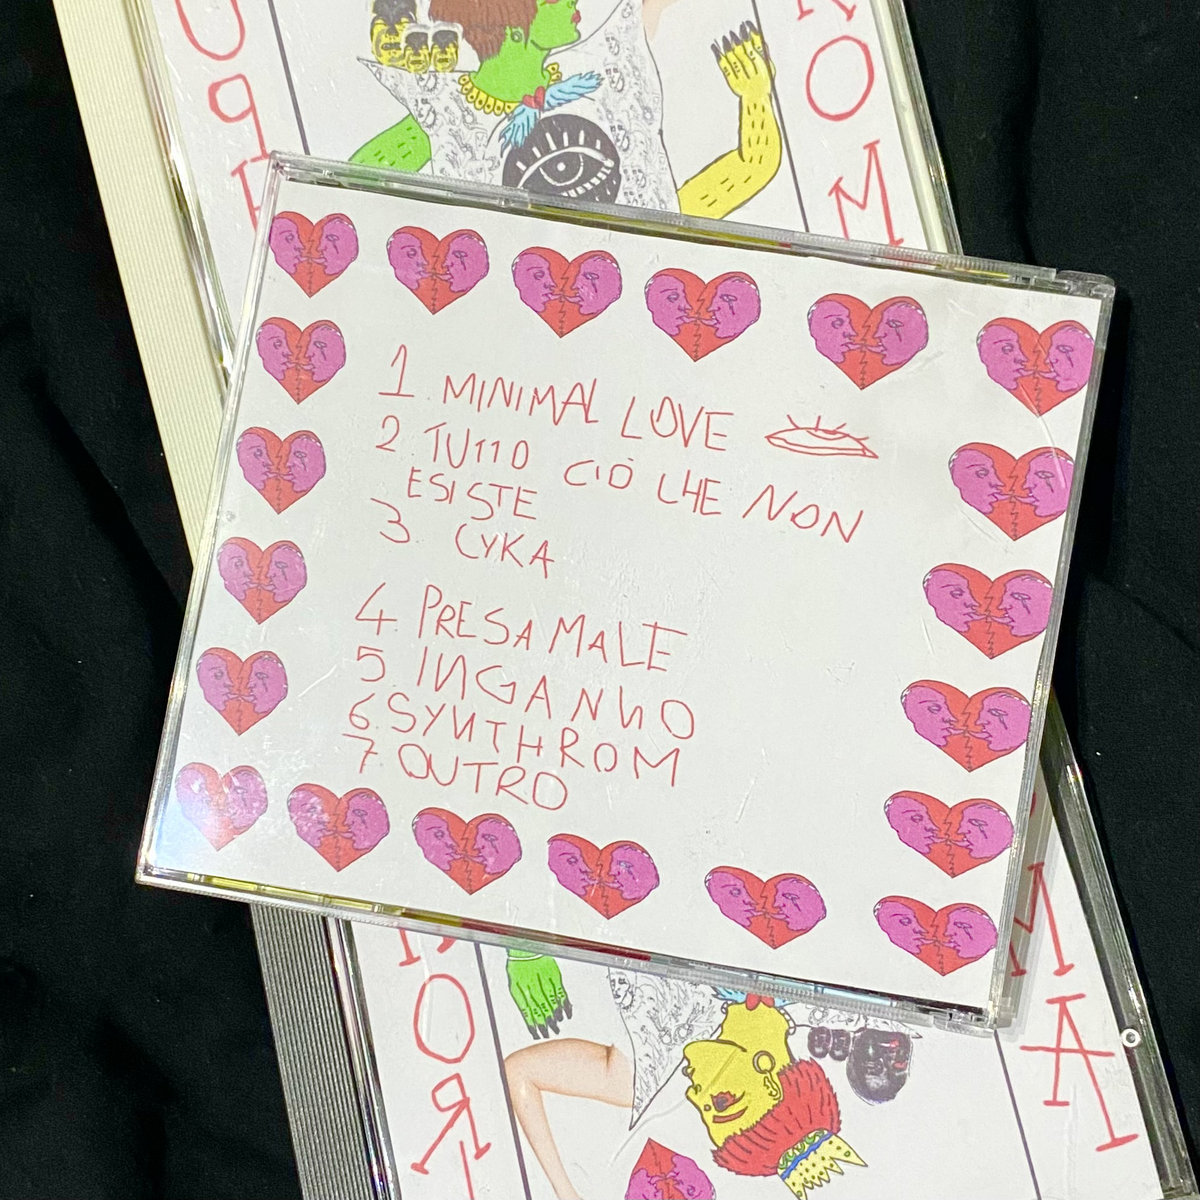 1. MINIMAL LOVE
2. TUTTO CIÒ CHE NON
ESISTE
3. CYKA
4. PRESAMALE
5. INGANNO
6. SYNTHROM
7 OUTRO
ROM